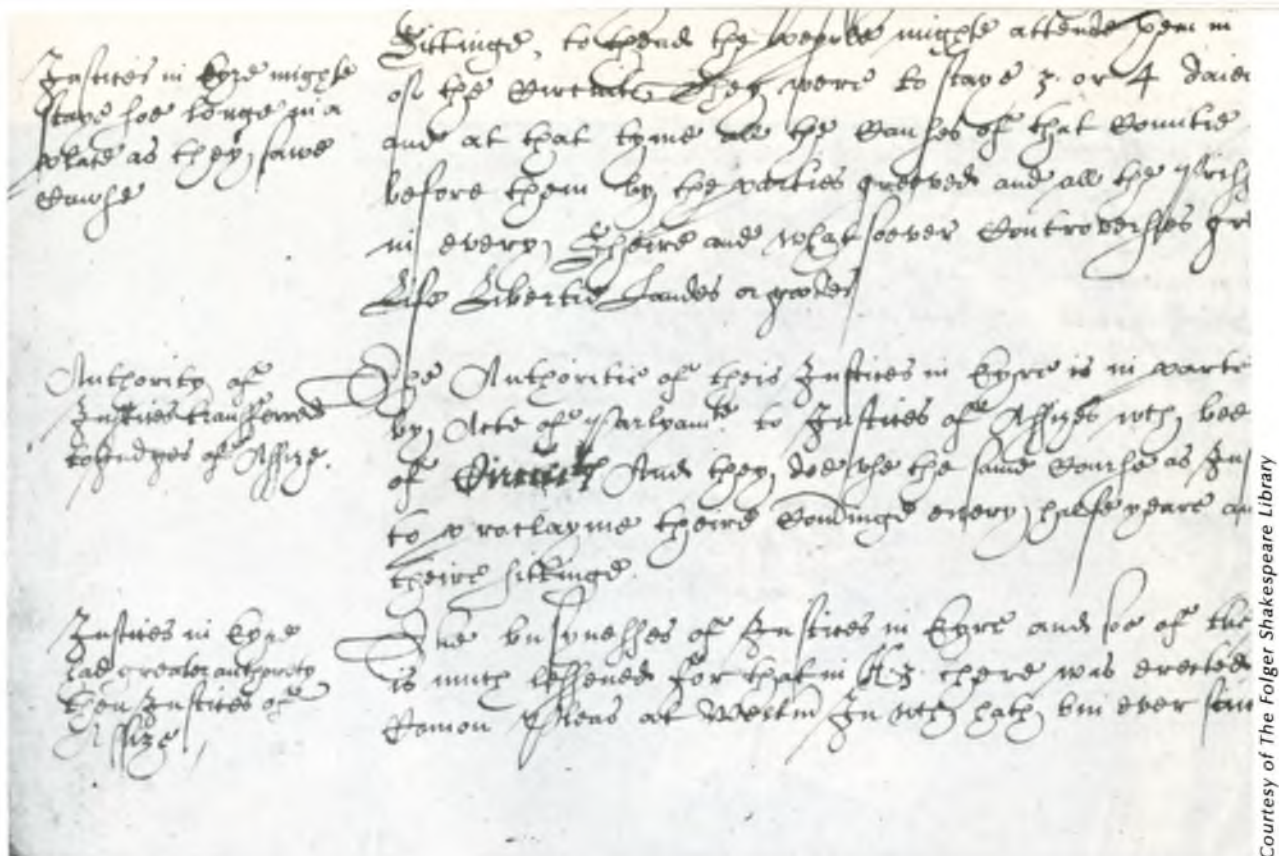 Justices in Eyre mighte
staye soe longe in a
place as they sawe
Cawse
Sittinge, to thend the people mighte attende them in
of the Circuite They were to staye 3. or 4 daies
and at that tyme all the Causes of that Countie
before them by the parties greeved and all the
in every Sheire and whatsoever Controversies gr
Life Libertie Landes or goodes
Authority of
Justices transferred
to Judges of Assize.
The Authoritie of theis Justices in Eyre is in parte
by Acte of Parlyamt. to Justices of Assizes wch bee
of Circuits And they doe use the same Course as Jus
to proclayme theire Cominge every halfe yeare an
theire sittinge.
Justices in Eyre
had greater authority
then Justices of
Assize
The busynesses of Justices in Eyre and soe of the
is much lessened for that in H.3. there was erected
Comon Pleas at Westm In wch hath bin ever
Courtesy of The Folger Shakespeare Library